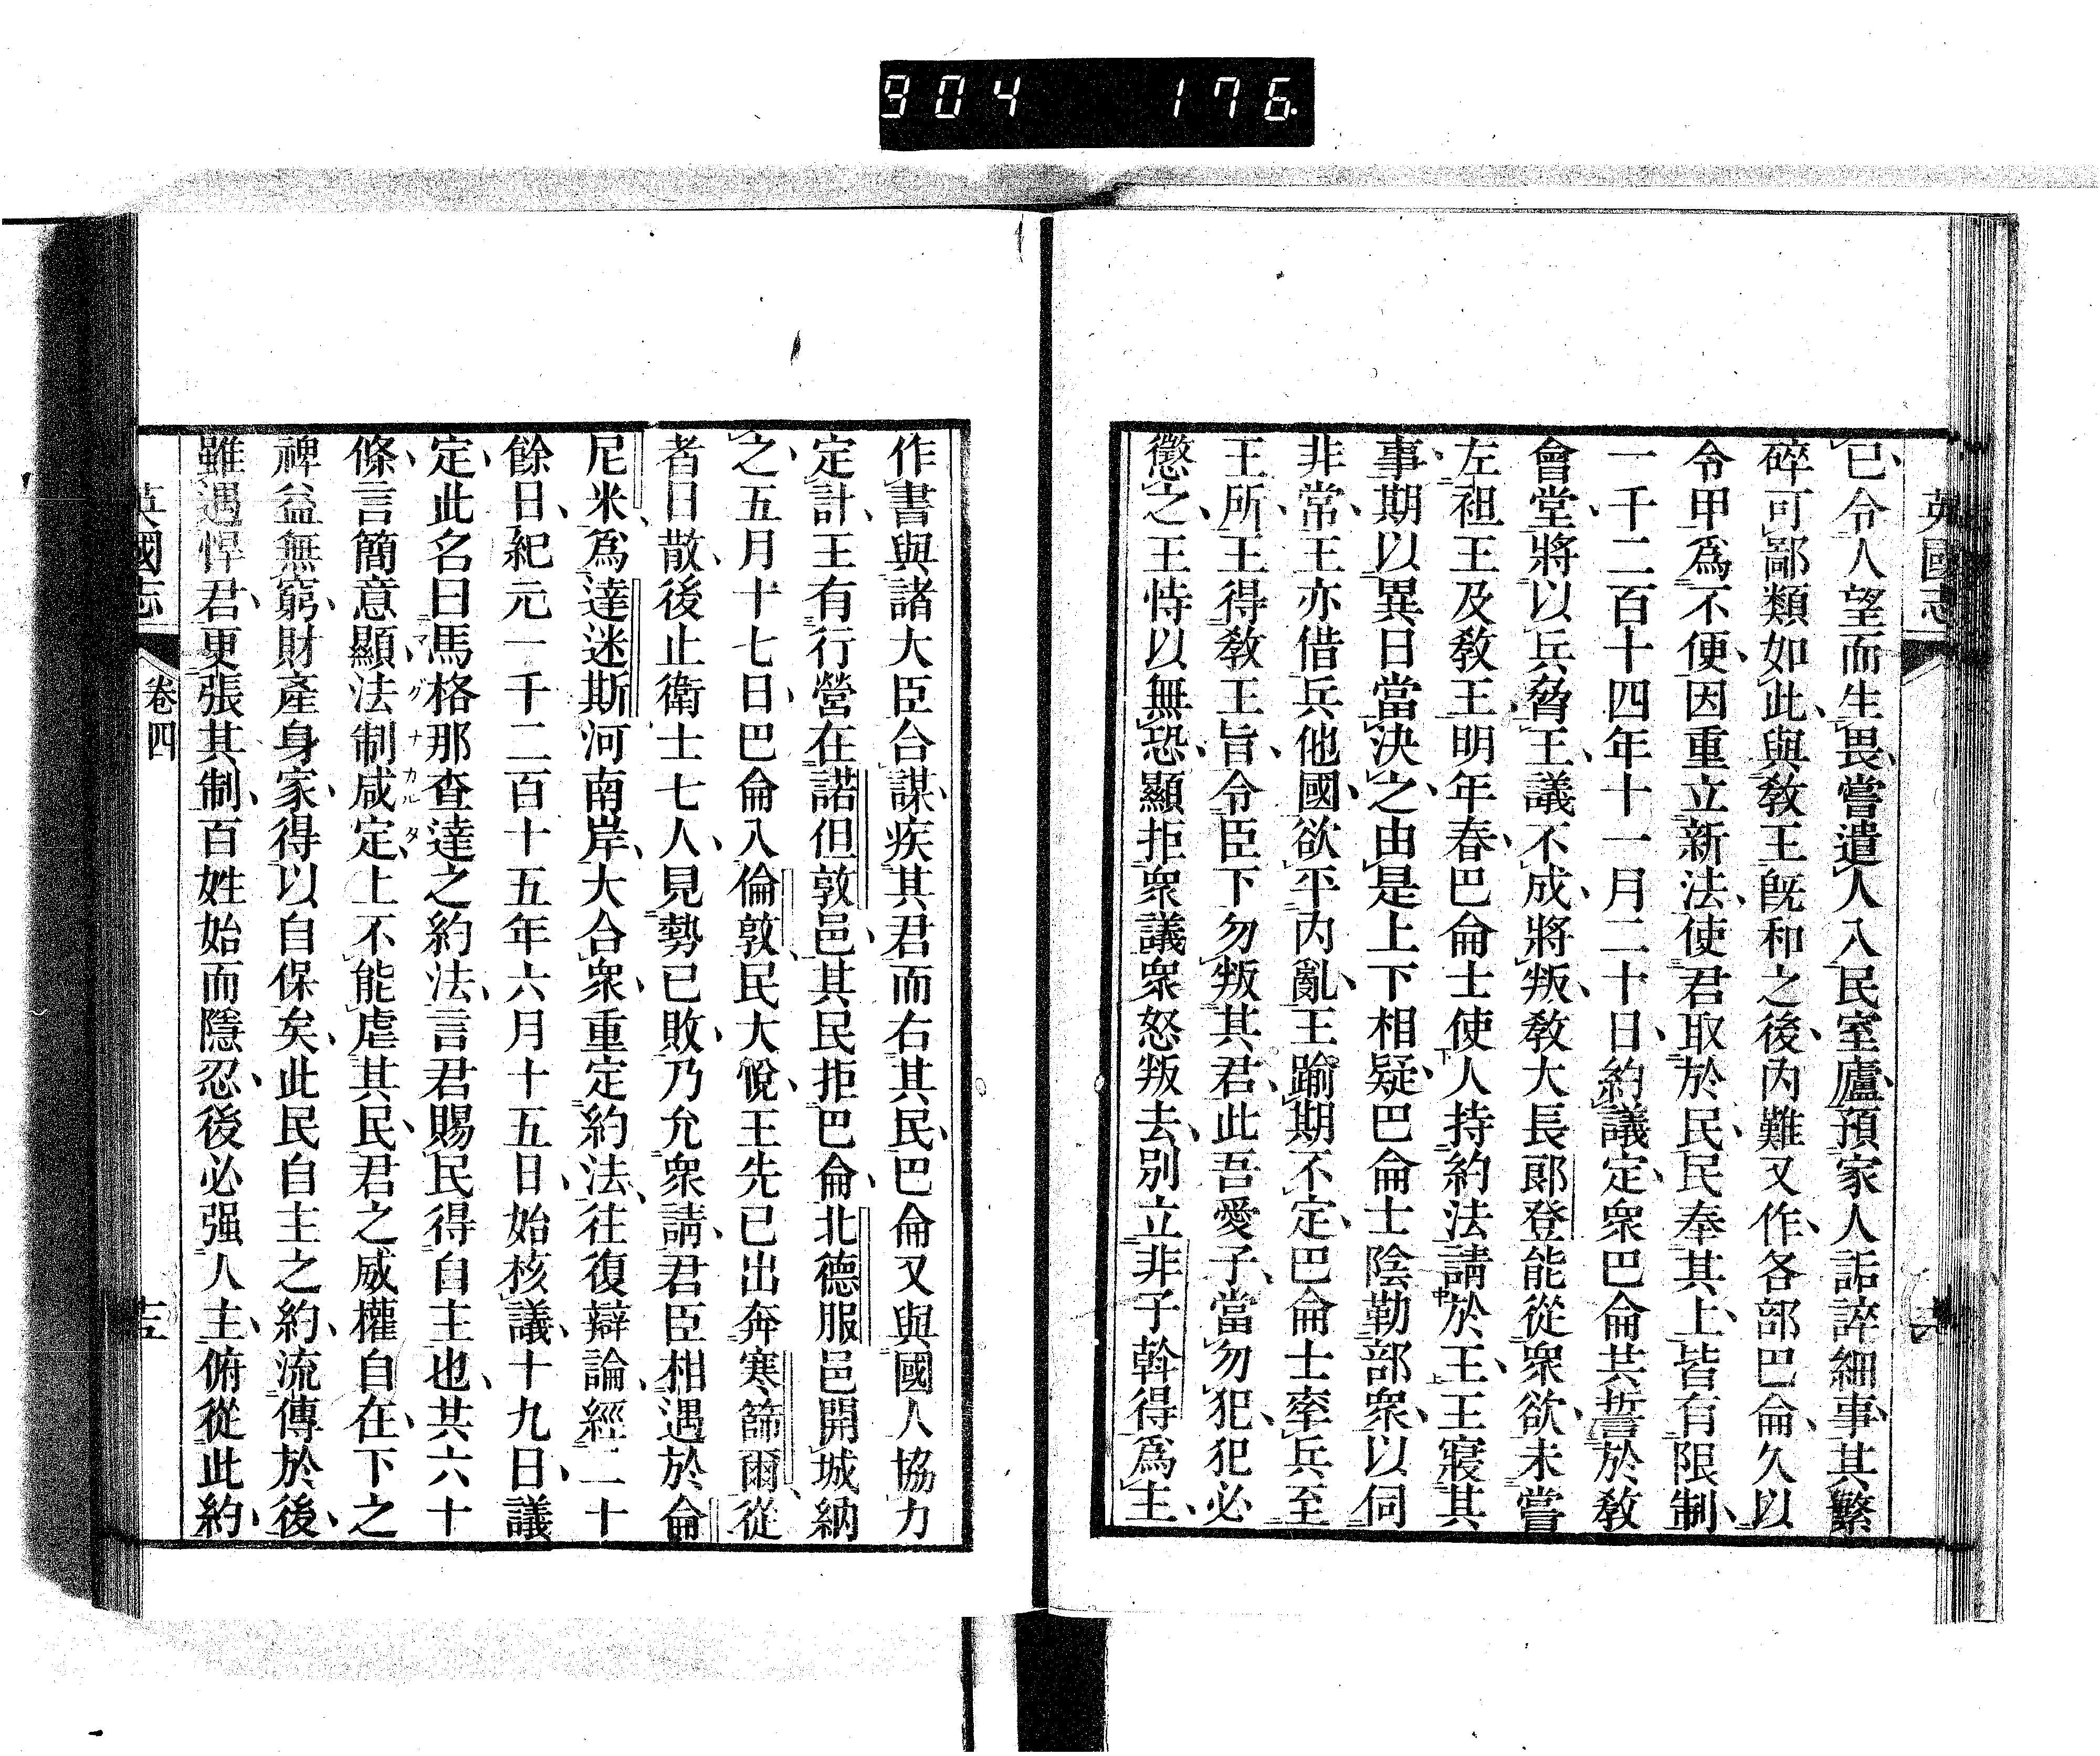 904 176
英國志
已令人望而生畏嘗遣人入民室廬預家人詬誶細事其繁
碎可鄙類如此與教王既和之後內難又作各部巴侖久以
令甲爲不便因重立新法使君取於民民奉其上皆有限制
一千二百十四年十一月二十日約議定眾巴侖共誓於教
會堂將以兵脅王議不成將叛教大長郞登能從眾欲未嘗
左袒王及教王明年春巴侖士使人持約法請於王王寢其
事期以異日當決之由是上下相疑巴侖士陰勒部眾以伺
非常王亦借兵他國欲平內亂王踰期不定巴侖士率兵至
王所王得教王旨令臣下勿叛其君此吾愛子當勿犯犯必
懲之王恃以無恐顯拒眾議眾怒叛去別立非子斡得爲主
作書與諸大臣台謀疾其君而右其民巴侖又與國人協力
定計王有行營在諾但敦邑其民拒巴侖北德服邑開城納
之五月十七日巴侖入倫敦民大悅王先已出奔寒篩爾從
者日散後止衛士七人見勢已敗乃允眾請君臣相遇於侖
尼米爲達迷斯河南岸大合眾重定約法往復辯論經二十
餘日紀元一千二百十五年六月十五日始核議十九日議
定此名曰馬格那查達之約法言君賜民得自主也其六十
マグナカルタ
條言簡意顯法制咸定上不能虐其民君之威權自在下之
裨益無窮財產身家得以自保矣此民自主之約流傳於後
雖遇悍君更張其制百姓始而隱忍後必强人主俯從此約
英國志
卷四